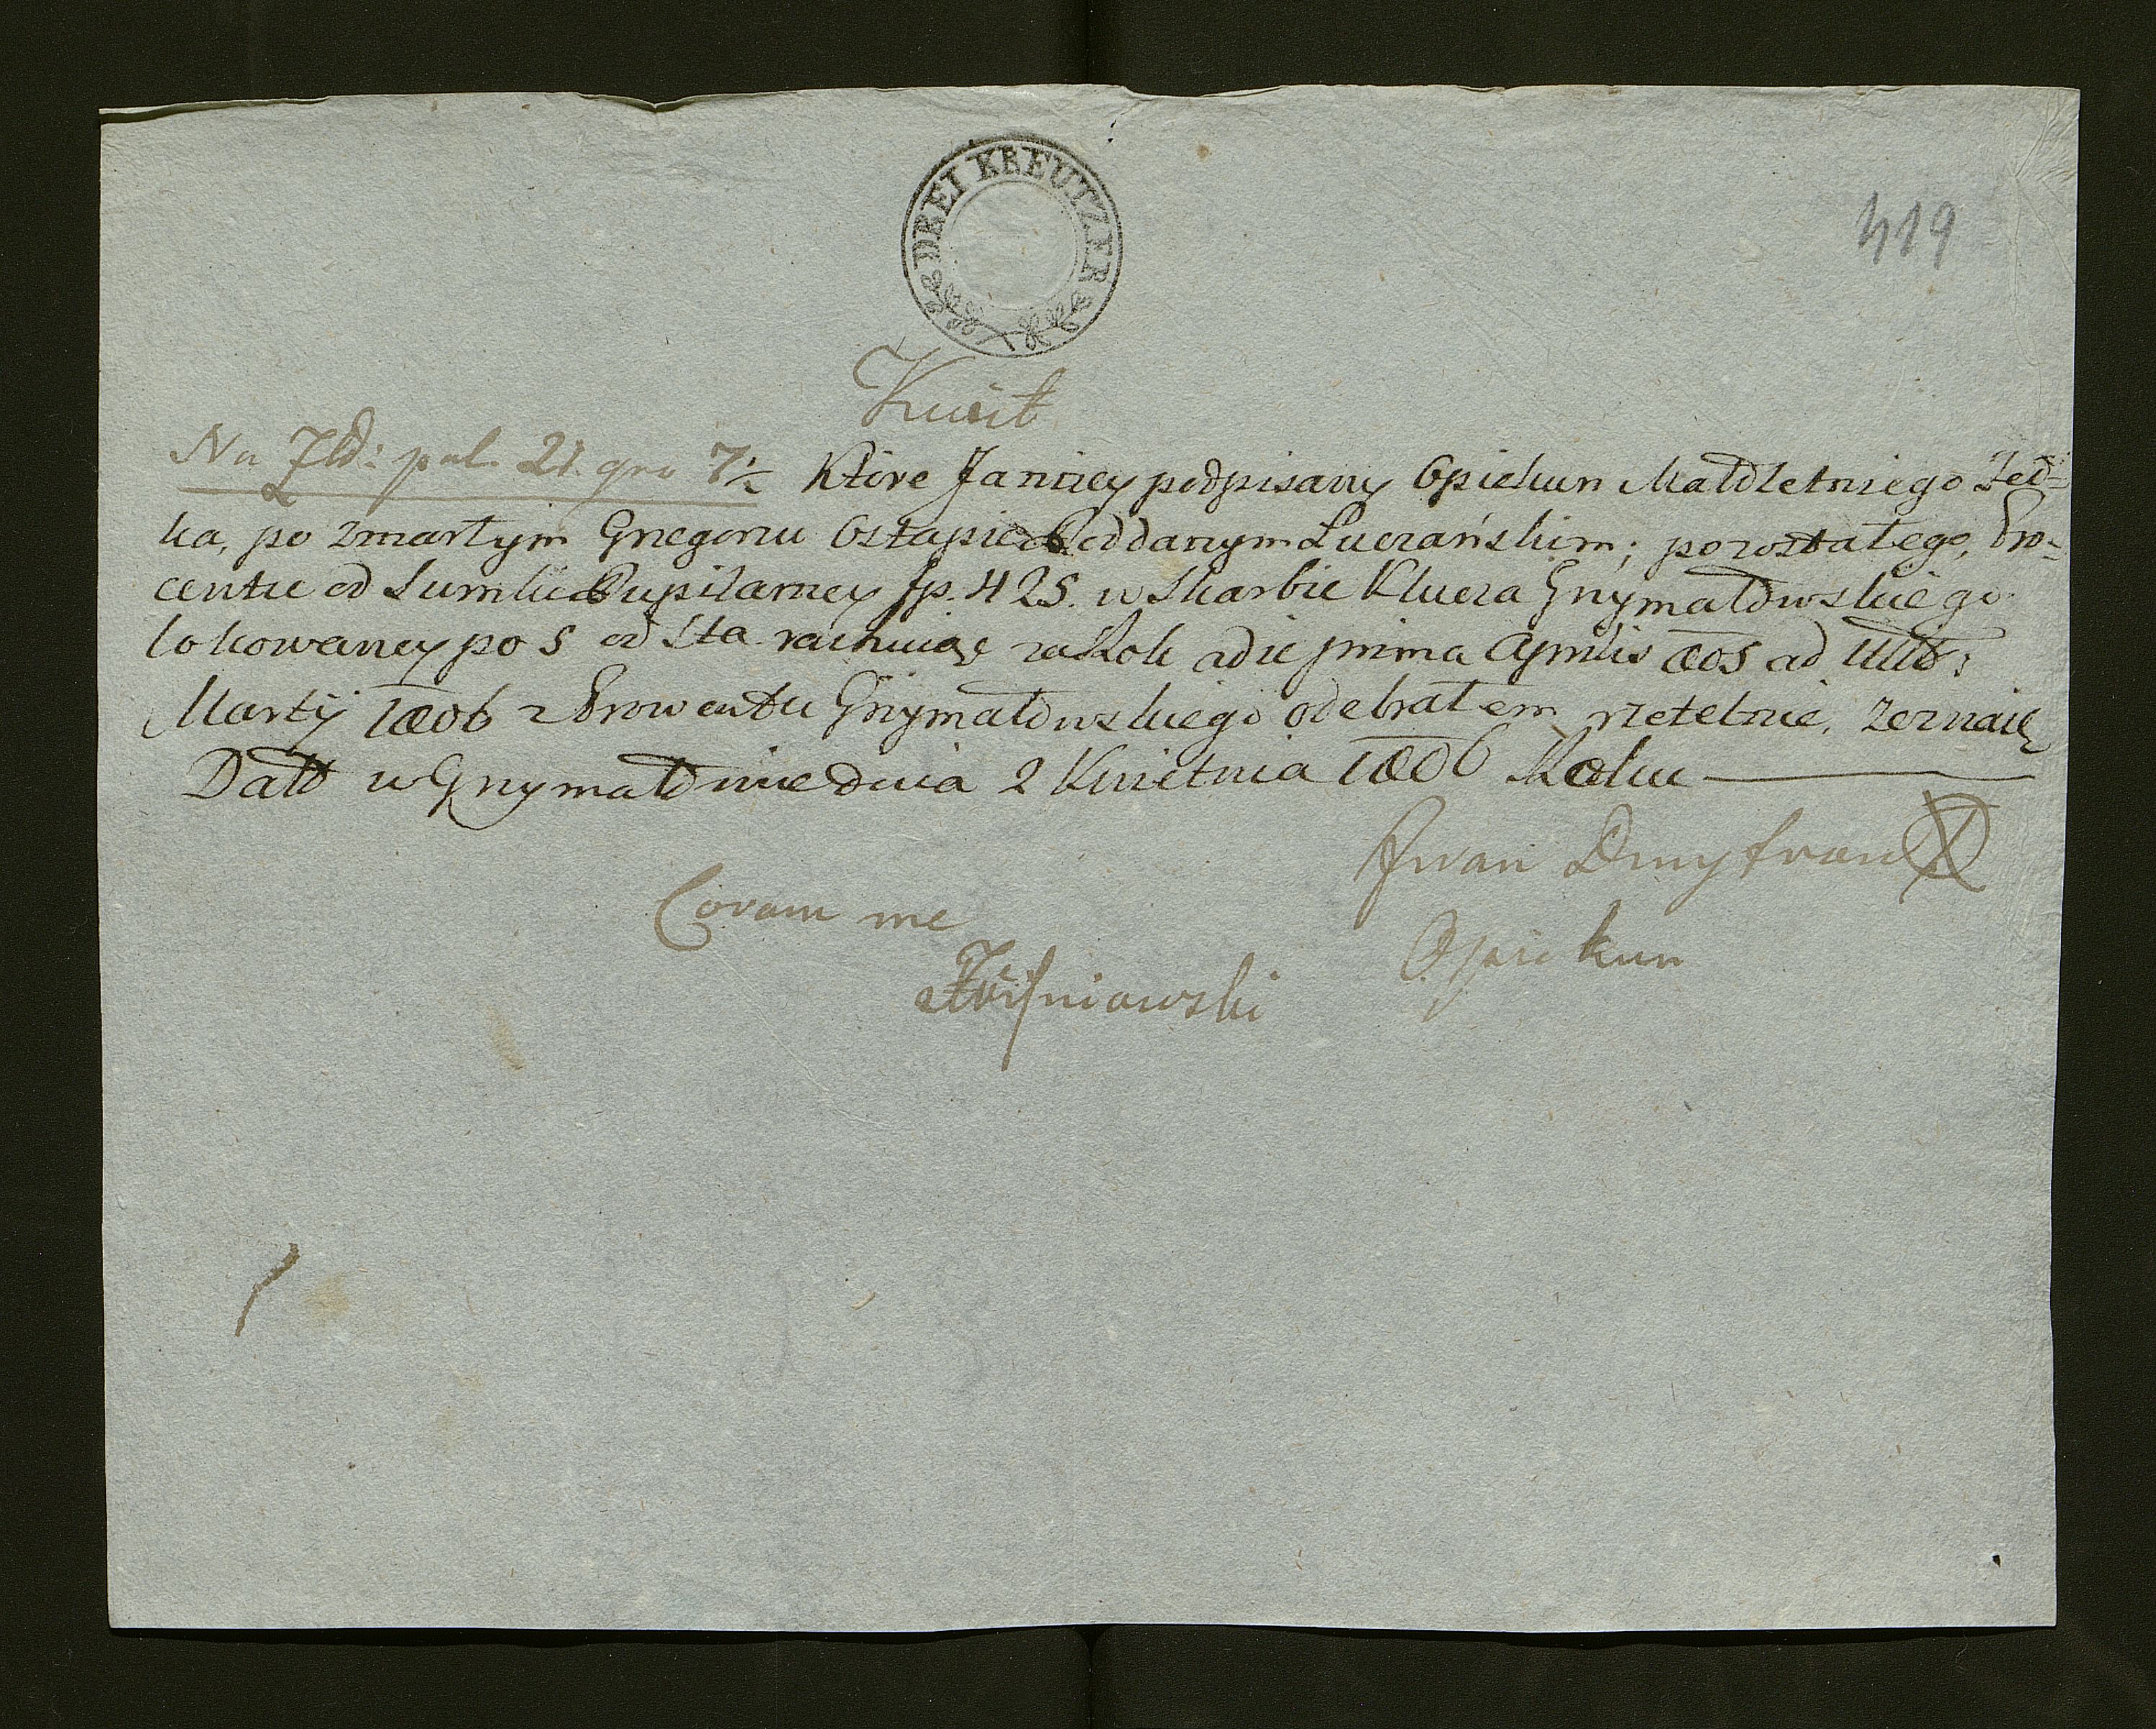 DREI KREUTZER
419
Kwit
Na Złł: pol. 21. gro 7½ Które Ja niżey podpisany Opiekun Małoletniego Fed=
ka, po zmarłym Gregoriu Ostapie Poddanym Luczańskim; pozostałego, Pro=
centu od Summy Pupilarney fp. 425. w Skarbie Klucza Grzymałowskiego
lokowaney po 5 od Sta rachuiąc za Rok a die prima Aprilis 805 ad Ult:
Martÿ 1806 z Prowentu Grzymałowskiego odebrałem rzetelnie, zeznaię
Datt w Grzymałowie dnia 2 Kwietnia 1806 Roku
Iwan Dmytran X
Coram me
Opiekun
Wiśniowski